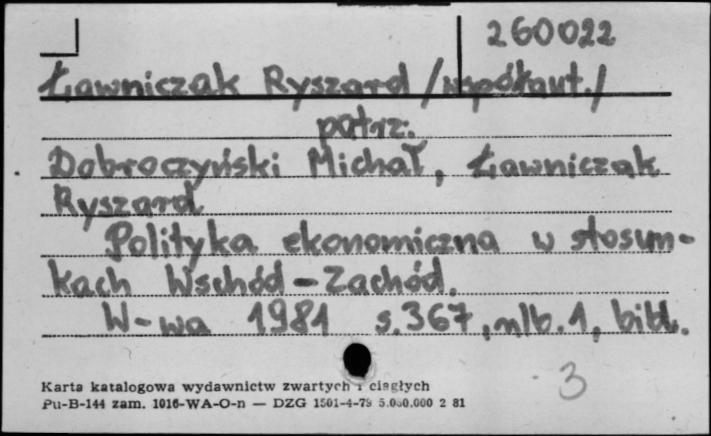 260022
Ławniczak Ryszard /współaut./
patrz:
Dobroczyński Michał, Ławniczak
Ryszard
Polityka ekonomiczna w stosun-
kach Wschód-Zachód.
W-wa 1981 s.367, nlb.1, bibl.
3
Karta katalogowa wydawnictw zwartych i ciągłych
Pu-B-144 zam. 1016-WA-O-n — DZG 1501-4-79 5.000.000 2 81